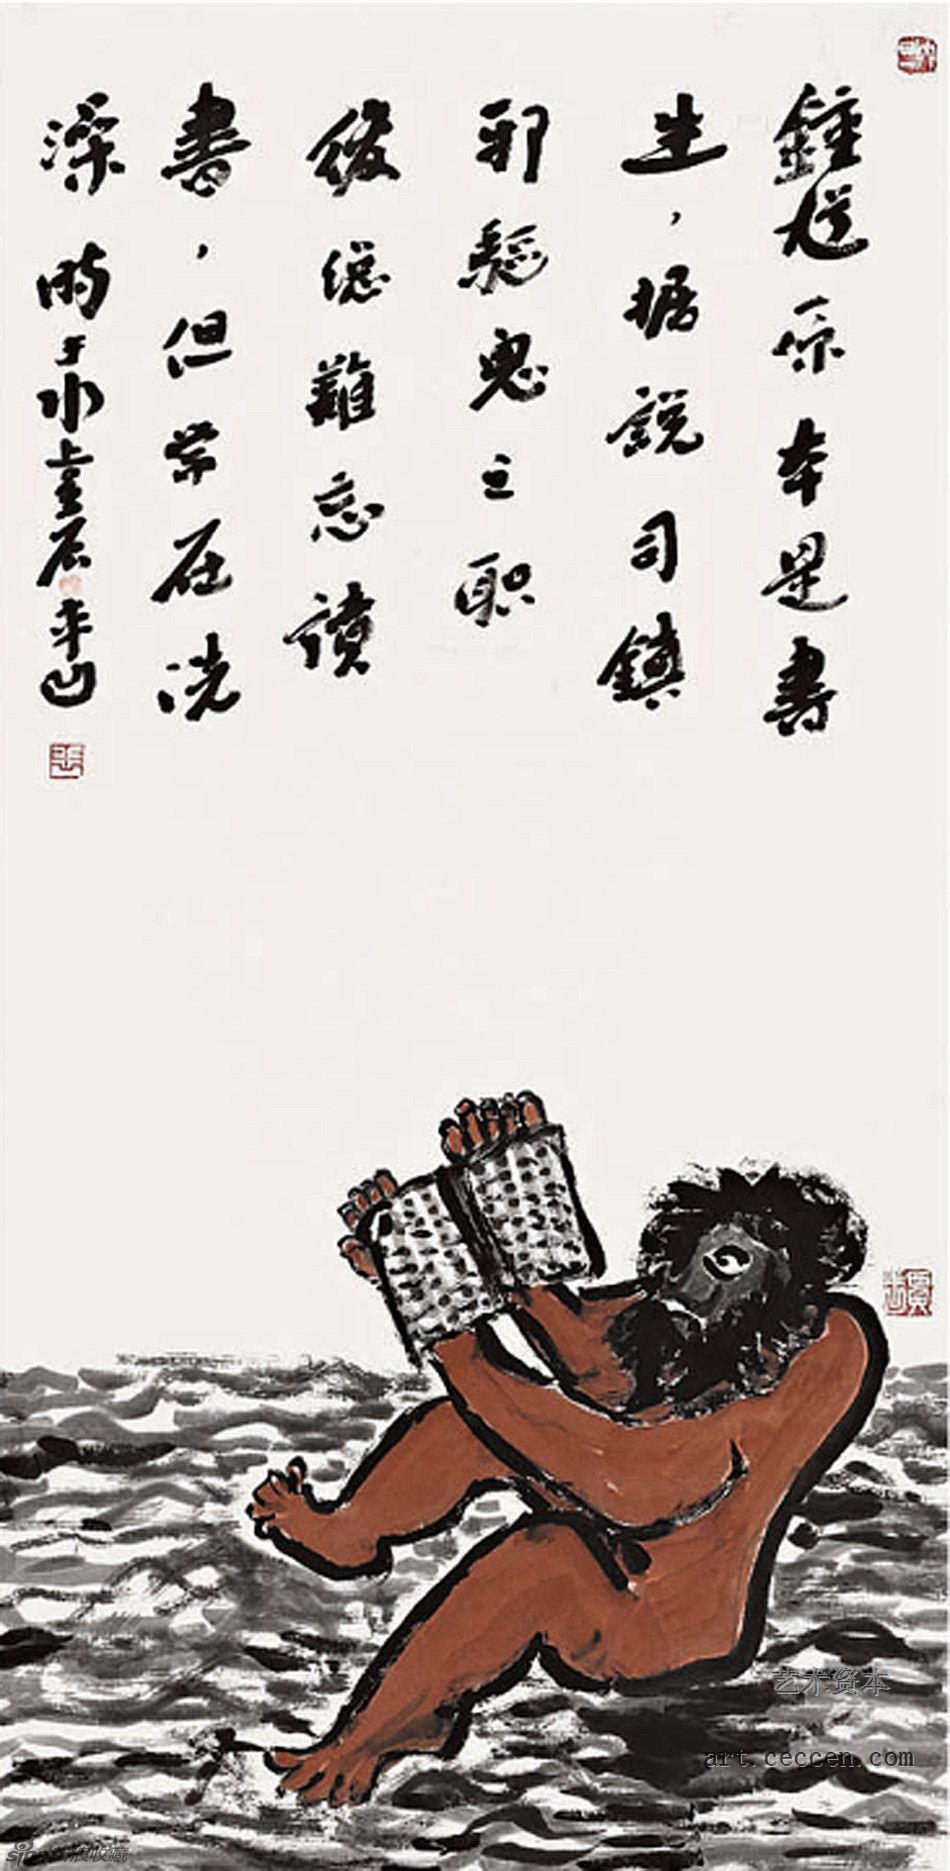 鍾馗原本是書
生，据說司鎮
邪驅鬼之职
後總難忘讀
書，但常在洗
澡時于水上壬辰平凹
艺术资本
art.ceccen.com